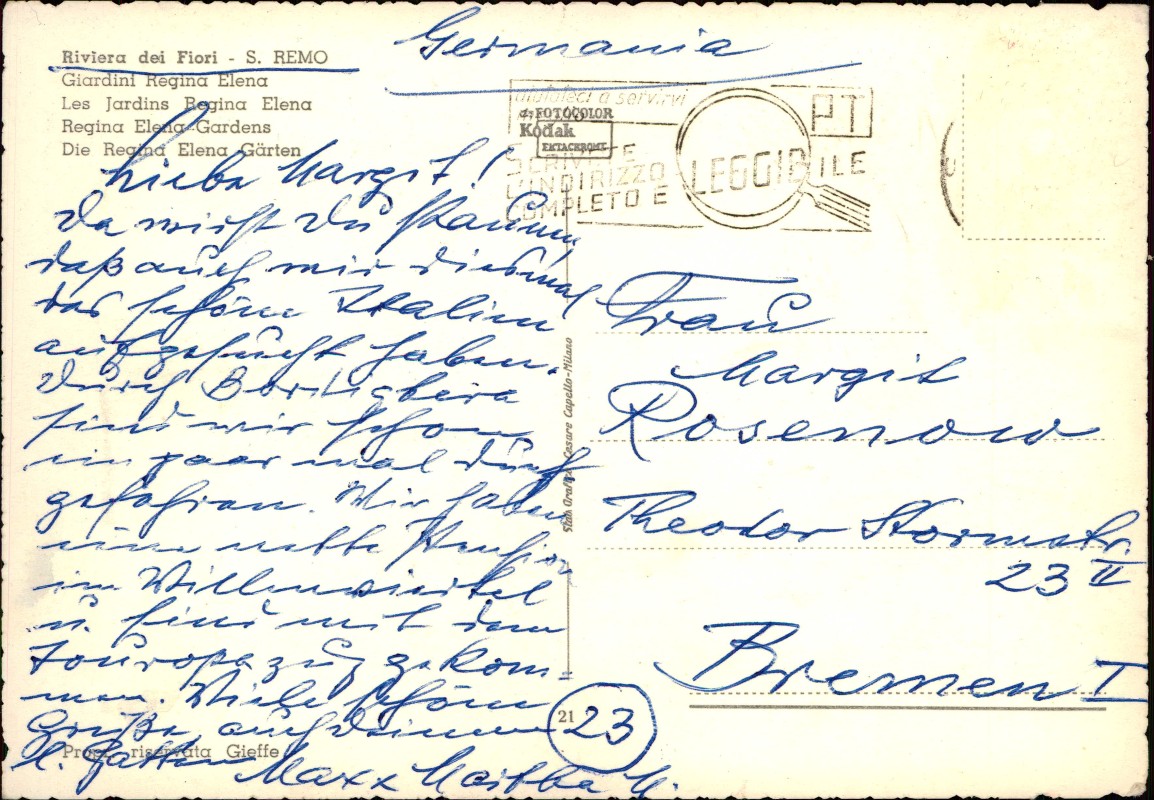 Riviera dei Fiori - S. REMO
Giardini Regina Elena
Les Jardins Regina Elena
Regina Elena Gardens
Die Regina Elena Gärten
Germania
aiutateci a servirvi
da FOTOCOLOR
Kodak
EKTACHROME
SCRIVETE
L'INDIRIZZO
COMPLETO E LEGGIBILE
PT
Liebe Margit!
Da wirst Du staunen,
daß auch wir diesmal
das schöne Italien
aufgesucht haben.
Durch Bordighera
sind wir schon
ein paar mal durch
gefahren. Wir haben
eine nette Pension
im Villenviertel
u. sind mit dem
Touropazug gekom-
men. Viele schöne
Grüße, auch Deinem
l. Gatten Maxx Martha M.
Stab. Grafico Cesare Capello-Milano
Frau
Margit
Rosenow
Theodor Stormstr.
23 II
Bremen I
21
23
Propr. riservata Gieffe